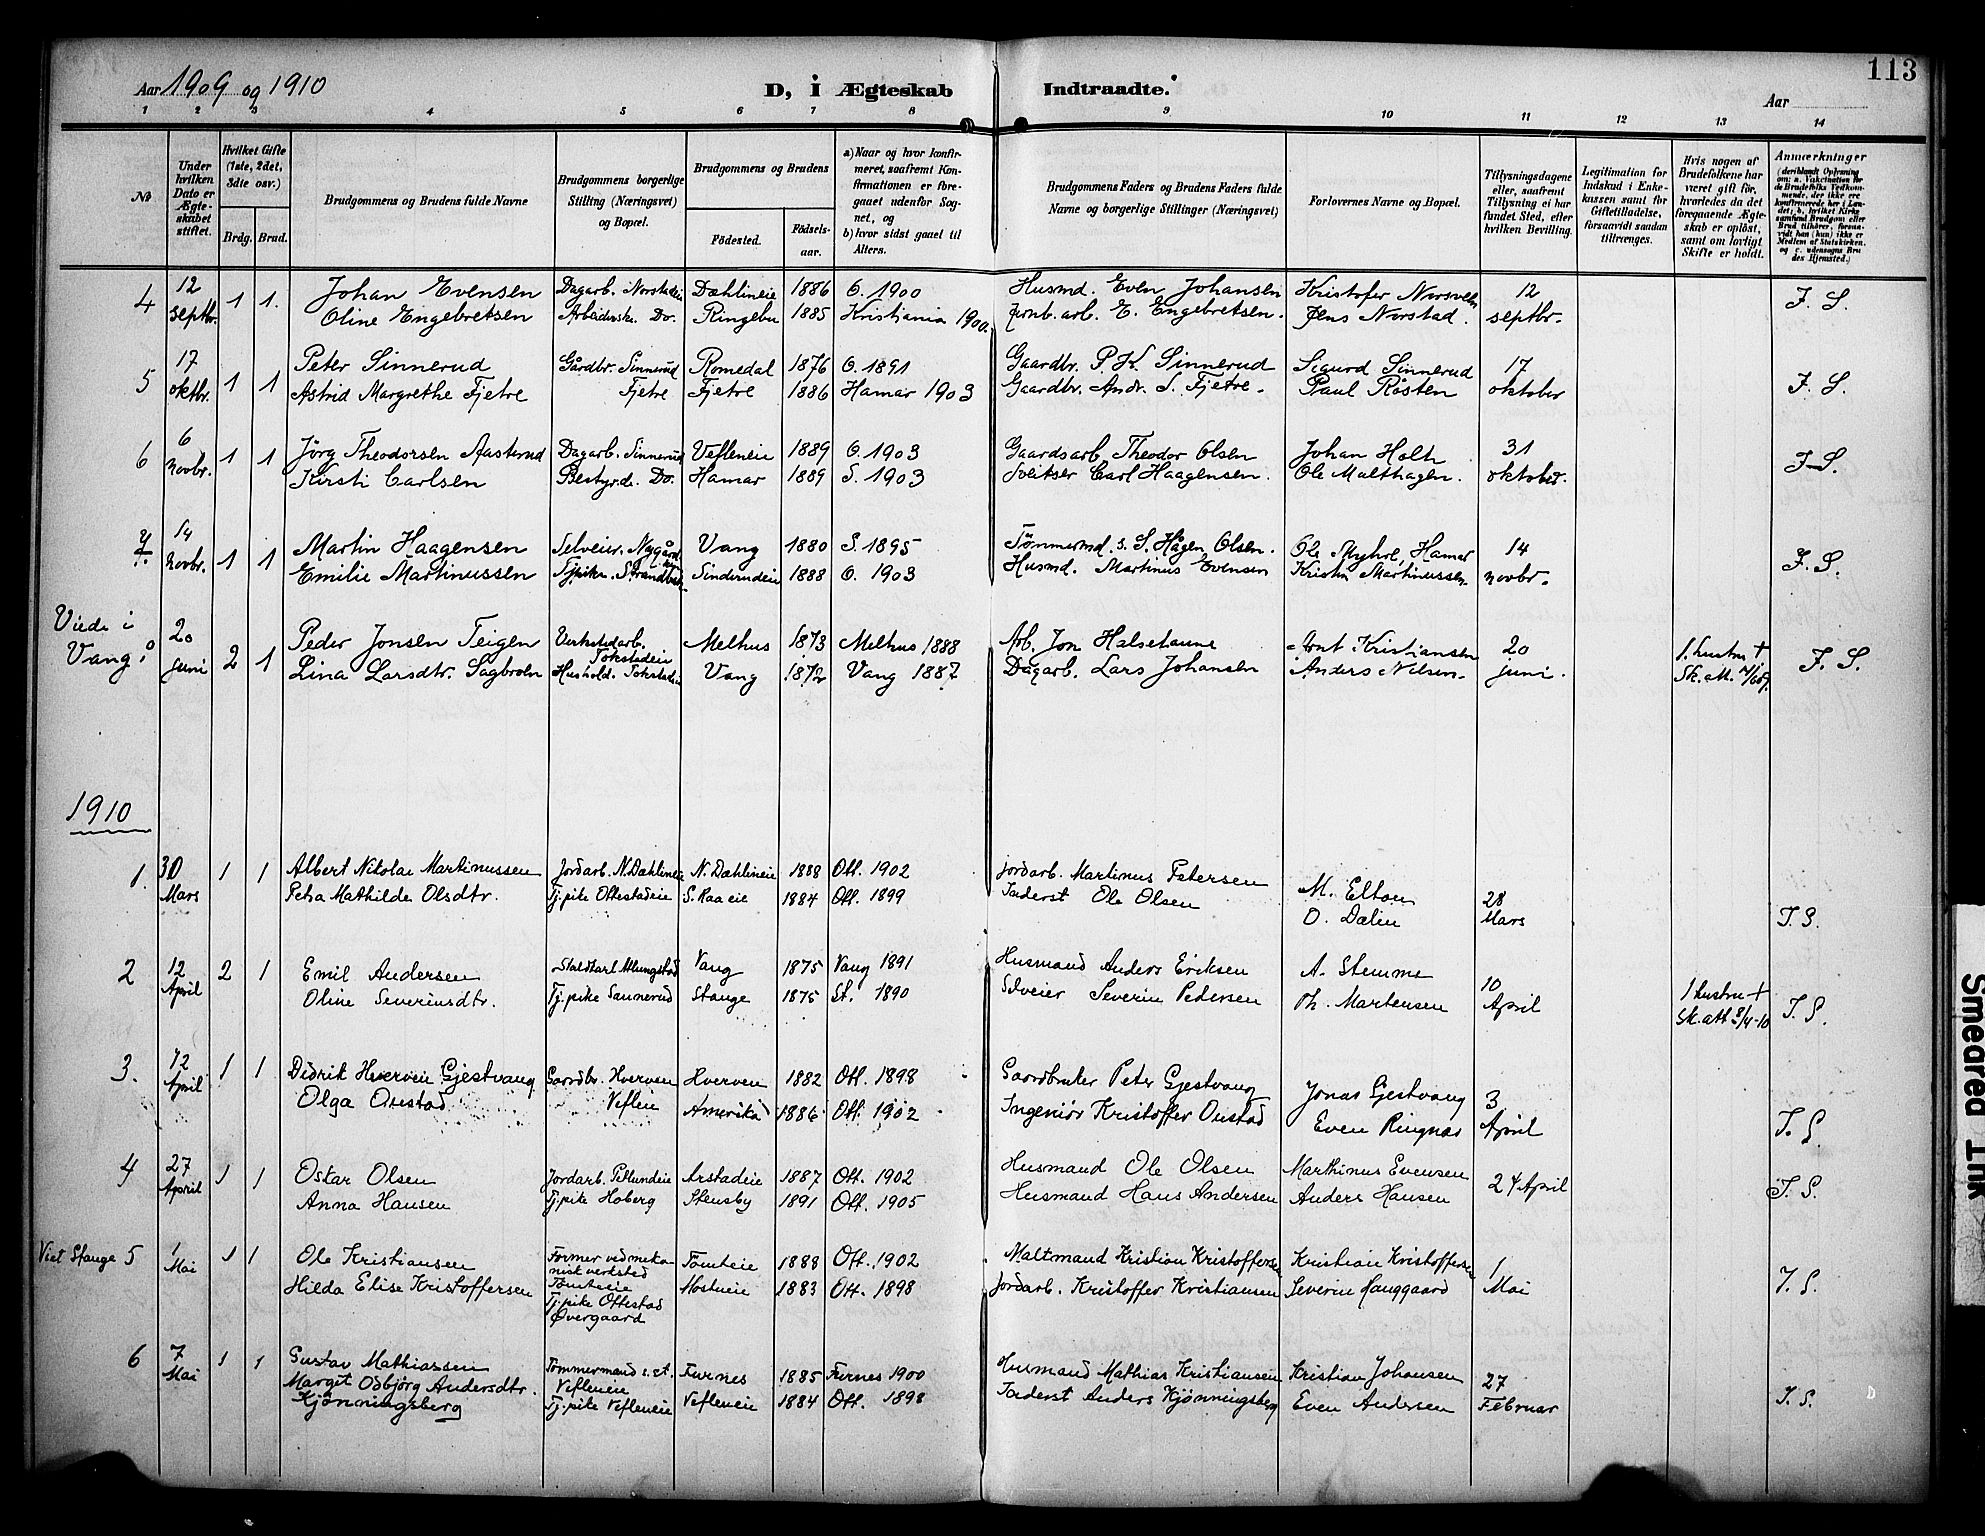 113
Aar 1909 og 1910 D, i Ægteskab Indtraadte. Aar
1 2 3 4 5 6 7 8 9 10 11 12 13 14
No
Under hvilken Dato er Ægteskabet stiftet.
Hvilket Gifte (1ste, 2det, 3die osv.)
Brdg. Brud.
Brudgommens og Brudens fulde Navne
Brudgommens borgerlige Stilling (Næringsvei) og Bopæl.
Brudgommens og Brudens
Fødested. Fødselsaar.
a) Naar og hvor konfirmeret, saafremt Konfirmationen er foregaaet udenfor Sognet, og
b) hvor sidst gaaet til Alters.
Brudgommens Faders og Brudens Faders fulde Navne og borgerlige Stillinger (Næringsvei)
Forlovernes Navne og Bopæl.
Tillysningsdagene eller, saafremt Tillysning ei har fundet Sted, efter hvilken Bevilling.
Legitimation for Indskud i Enkekassen samt for Giftetilladelse, forsaavidt saadan tiltrænges.
Hvis nogen af Brudefolkene har været gift før, hvorledes da det foregaaende Ægteskab er opløst, samt om lovligt Skifte er holdt.
Anmærkninger (deriblandt Oplysning om: a. Vakcination for de Brudefolks Vedkommende, der ikke ere konfirmerede her i Landet, b. hvilket Kirkesamfund Brudgom eller Brud tilhører, forsaavidt han (hun) ikke er Medlem af Statskirken, og c. udensogns Brudes Hjemsted.)
4 12 1 1. Johan Evensen Dagarb. Norstadeie Dæhlineie 1886 O. 1900 Husmd. Even Johansen Kristofer Norsveen 12 J. S.
septbr. Oline Engebretsen Arbeiderske Do. Ringebu 1885 Kristiania 1900. Jernb. arb. E. Engebretsen. Jens Norstad. septbr.
5 17 1 1 Peter Sinnerud Gårdbr. Sinnerud Romedal 1876 O. 1891 Gaardbr. P. K. Sinnerud Sigurd Sinnerud 17 J. S.
oktbr. Astrid Margrethe Fjetre Fjetre Fjetre 1886 Hamar 1903 Gaardbr. Andr. S. Fjetre. Paul Røsten oktober
6 6 1 1 Jörg Theodorsen Aasterud Dagarb. Sinnerud Vefleneie 1889 O. 1903 Gaardsarb Theodor Olsen Johan Holth 31 J. S.
novbr. Kirsti Carlsen Bestyr.d. Do. Hamar 1889 S. 1903 Sveitser Carl Haagensen. Ole Malthagen. oktober.
7. 14 1 1 Martin Haagensen Selveier. Nygård Vang 1880 S. 1895 Tömmermd. s. S. Hågen Olsen. Ole Myhre, Hamar 14 J. S.
novbr. Emilie Martinussen Tjpike. Sinderudeie 1888 O. 1903 Husmd. Martinus Evensen Kristn Martinussen novbr.
Viede i 20 2 1 Peder Jonsen Teigen Verkstedarb. Melhus 1873 Melhus 1888 Arb. Jon Halsetaune Arnt Kristiansen 20 1. hustru † J. S.
Vang: juni Lina Larsdtr. Sagbroen Hushold. Vang 1872 Vang 1887 Dagarb. Lars Johansen Anders Nilsen. juni. Sk. att.
1910
1. 30 1 1 Albert Nikolai Martinussen Jordarb. N. Dæhlineie N. Dæhlineie 1888 Ott. 1902 Jordarb. Martinus Petersen M. Elton 28 J. S.
Mars Petra Mathilde Olsdtr. Tj. pike Ottestadeie S. Raaeie 1884 Ott. 1899 Inderst Ole Olsen O. Dælin Mars
2 12 2 1 Emil Andersen Staldkarl Atlungstad Vang 1875 Vang 1891 Husmand Anders Eriksen A. Stemme 10 1 hustru † J. S.
April Oline Severinsdtr. Tj. pike Sannerud Stange 1875 St. 1890 Selveier Severin Pedersen Th. Martensen April Sk. att. 8/4-10
3. 12 1 1 Didrik Hverven Gjestvang Gaardbr. Hverven Hverven 1882 Ott. 1898 Gaardbruker Peter Gjestvang Jonas Gjestvang 3 J. S.
April Olga Onstad Veflen Amerika 1886 Ott. 1902 Ingeniör Kristoffer Onstad Even Ringnæs April
4 27 1 1 Oskar Olsen Jordarb. Pellundeie Arstadeie 1887 Ott. 1902 Husmand Ole Olsen Marthinus Evensen 24 April J. S.
April Anna Hansen Tj. pike Hoberg Stensby 1891 Ott. 1905 Husmand Hans Andersen Anders Hansen
Viet Stange 5 1 1 1 Ole Kristiansen Former ved mekanisk verksted Tomteie Tomteie 1888 Ott. 1902 Maltmand Kristian Kristoffersen Kristian Kristoffersen 1 J. S.
Mai Hilda Elise Kristoffersen Tj. pike Ottestad Övergaard Mostueie 1883 Ott. 1898 Jordarb. Kristoffer Kristiansen Severin Hauggaard Mai
6 7 1 1 Gustav Mathiassen Tömmermand s. st. Vefleneie Furnes 1885 Furnes 1900 Husmand Mathias Kristiansen Kristian Johansen 27 J. S.
Mai Margit Odbjörg Andersdtr. Kjönningsberg Tj. pike Vefleneie Vefleneie 1884 Ott. 1898 Inderst Anders Kjönningsberg Even Andersen Februar
Smeared Ink